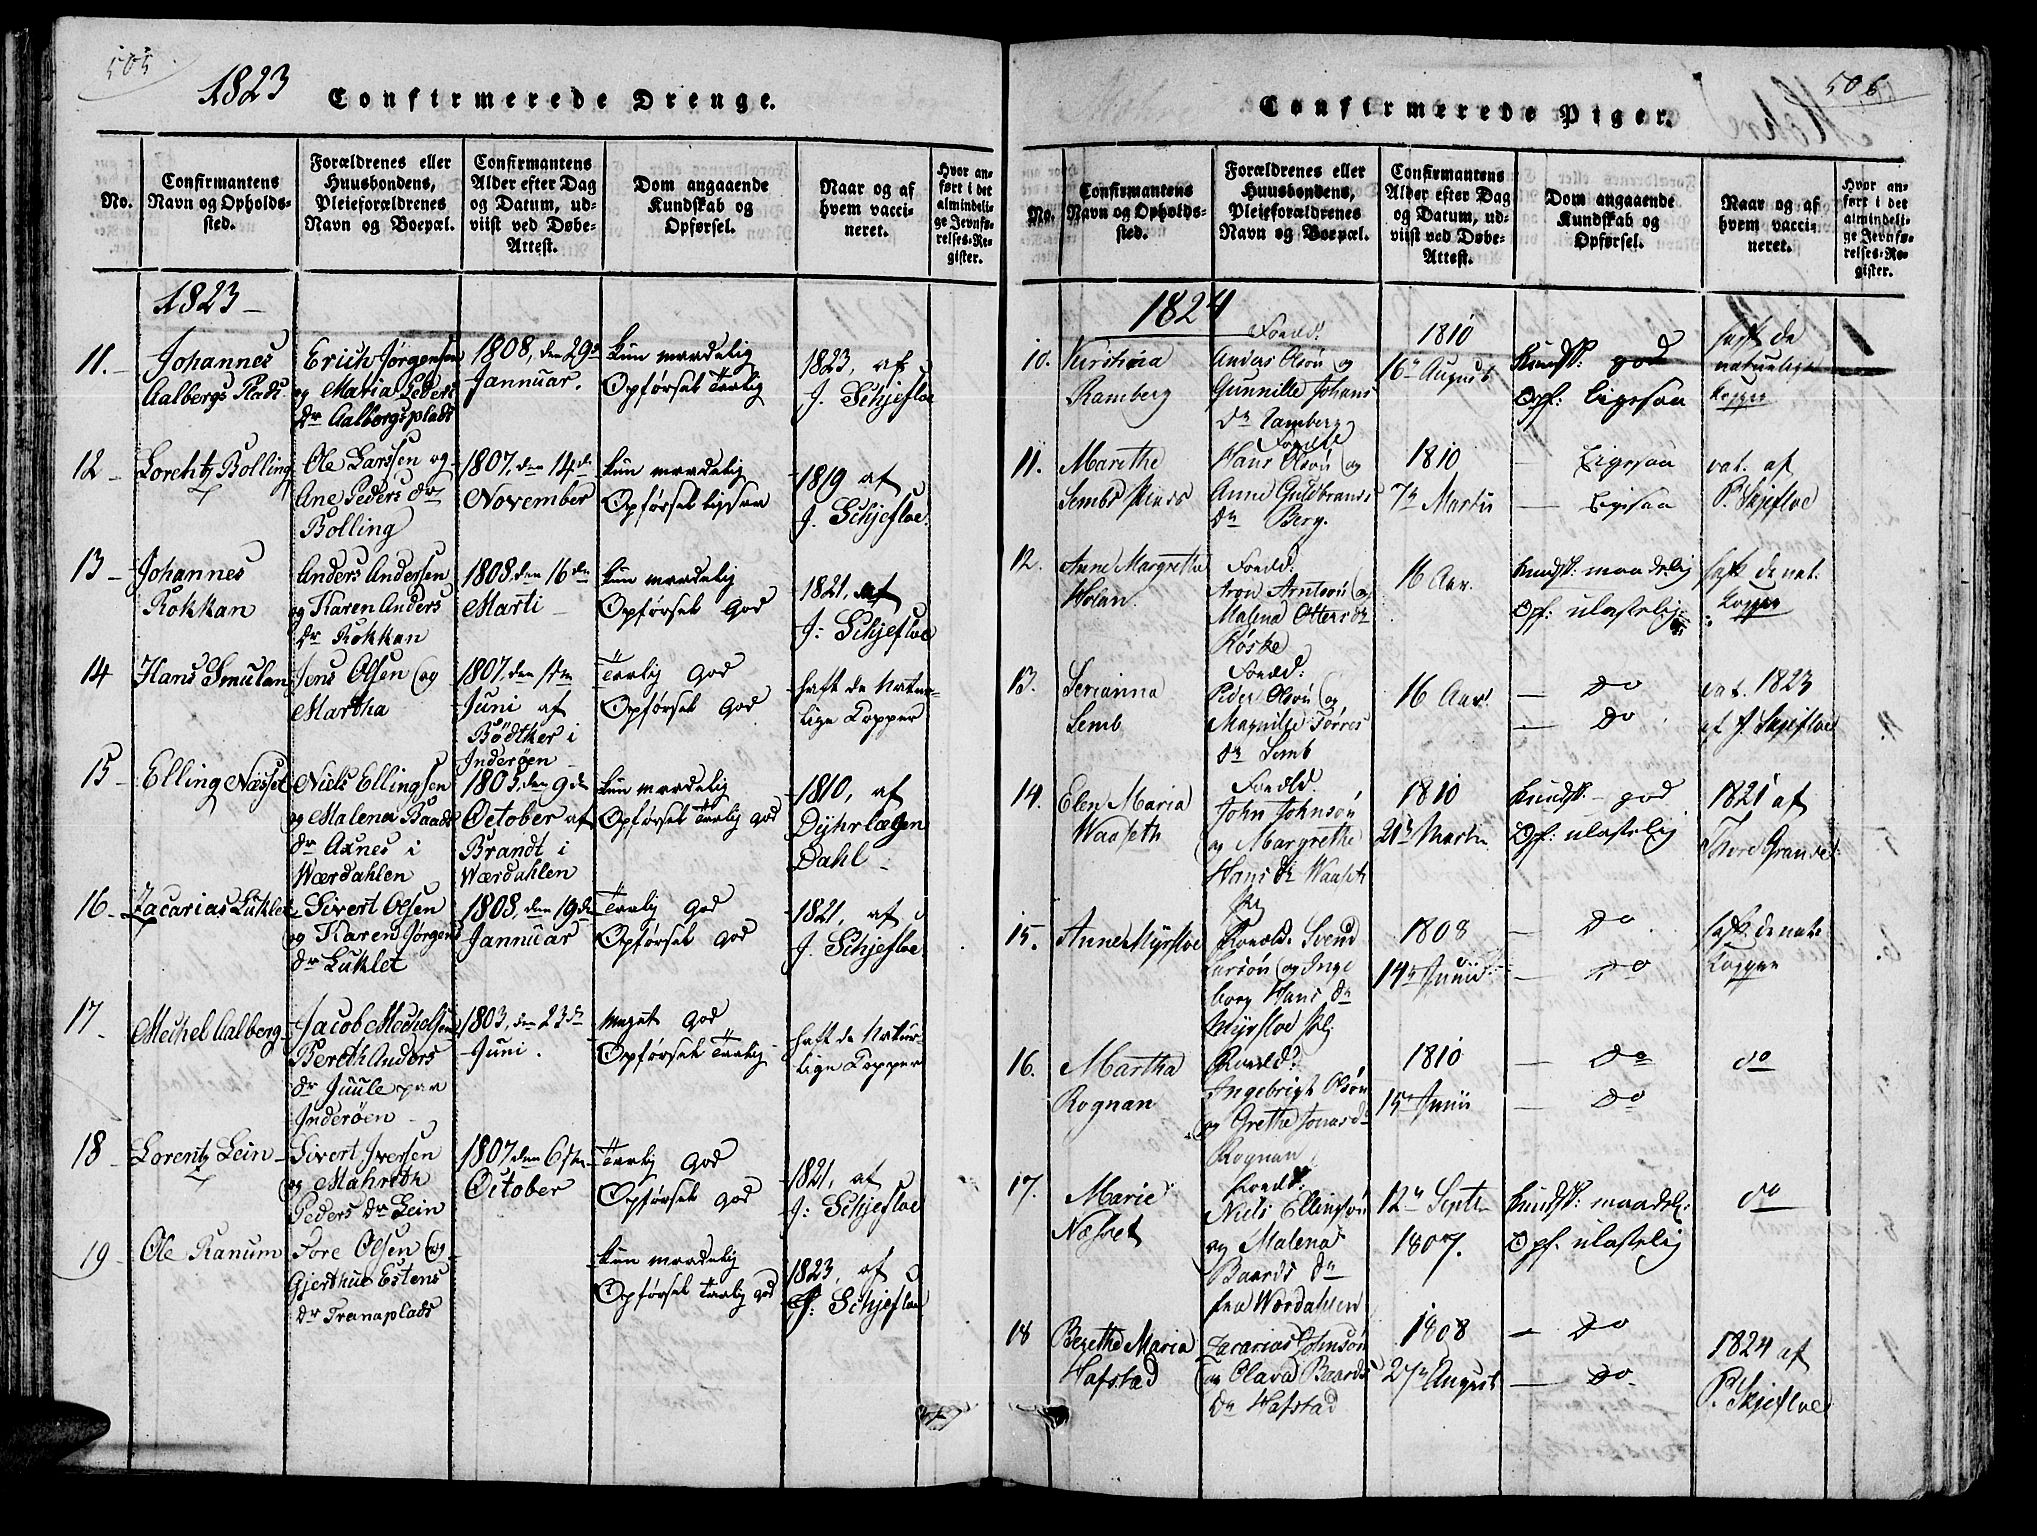 505
1823
Confirmerede Drenge.
No.
Confirmantens
Navn og Opholds-
sted.
Forældrenes eller
Huusbondens,
Pleieforældrenes
Navn og Boepæl.
Confirmantens
Alder efter Dag
og Datum, ud-
viist ved Døbe-
Attest.
Dom angaaende
Kundskab og
Opførsel.
Naar og af
hvem vacci-
neret.
Hvor an-
ført i det
almindeli-
ge Jevnfø-
relses-Re-
gister.
1823 -
11. -
Johannes
Aalbergs Plads
Erich Jørgensen
og Maria Peders
dr Aalbergsplads
1808, den 29de
Jannuar.
kun maadelig
Opførsel Tarlig
1823, af
J. Schjefloe
12 -
Lorentz Bolling
Ole Larssen og
Ane Peders dr
Bolling
1807, den 14de
November
kun maadelig
Opførsel ligesaa
1819 af
J. Schjefloe.
13 -
Johannes
Rokkan
Anders Andersen
og Karen Anders
dr Rokkan
1808, den 16de
Marti -
kun maadelig
Opførsel God
1821, af
J: Schjefloe
14
Hans Smulan
Jens Olsen og
Martha
1807, den
Juni af
Bödtker i
Inderøen
Tarlig God
Opførsel God
haft de Natur-
lige Kopper
15 -
Elling Næsset
Niels Ellingsen
og Malena Baards
dr Axnes i
Wærdahlen
1805, den 9de
October af
Brandt i
Wærdahlen
kun maadelig
Opførsel Tarlig God
1810, af
Dyhrlægen
Dahl -
16 -
Zacarias Luklet
Sivert Olsen
og Karen Jørgens
dr Luklet
1808, den 19de
Jannuar
Tarlig God
Opførsel God
1821, af
J. Schjefloe
17 -
Mechel Aalberg
Jacob Mechelsen
Bereth Anders
dr Juule paa
Inderøen -
1803, den 23de
Juni.
meget God
Opførsel Tarlig
haft de Natur-
lige Kopper
18 -
Lorentz Lein
Sivert Iversen
og Mahreth
Peders dr Lein
1807 den 6te
October
Tarlig God
Opførsel God
1821, af
J: Schjefloe
19 -
Ole Ranum
Tore Olsen og
Gjerthue Estens
dr Tranaplads
kun maadelig
Opførsel Tarlig God
1823, af
J: Schjefloe
506
Confirmerede Piger.
No.
Confirmantens
Navn og Opholds-
sted.
Forældrenes eller
Huusbondens,
Pleieforældrenes
Navn og Boepæl.
Confirmantens
Alder efter Dag
og Datum, ud-
viist ved Døbe-
Attest.
Dom angaaende
Kundskab og
Opførsel.
Naar og af
hvem vacci-
neret.
Hvor an-
ført i det
almindeli-
ge Jevnfø-
relses-Re-
gister.
1824
10.
Kirstina
Ramberg
Foræld:
Andas Olsøn og
Gunnille Johans
dr Ramberg
1810
16de August
Kundsk: god
Opf: ligesaa
haft de
naturlige
Kopper
11.
Marethe
Sembs
Foræld
Hans Olsøn og
Anne Guldbrands
dr Berg.
1810
7de Martii
- Ligesaa
- Ligesaa
vac. af
P. Skjefloe
12.
Anne Margrethe
Holan.
Foræld:
Aron Arntsøn og
Malena Otters dr
Røske
16 Aar.
Kundsk: maadelig
Opf: ulastelig
haft de nat.
Kopper
13.
Serianna
Semb
Foræld:
Peder Olsøn og
Magnille Torres
dr Semb
16 Aar
- do
- do
vac. 1823
af J. Skjefloe
14.
Elen Maria
Waaseth
Foræld.
John Johnsøn
og Margrethe
Hans dr Waaseth
1810
21de Martii
Kundsk: god
Opf: ulastelig
1821 af
Thore Grande
15.
Anne Myrsloe
Foræld. Svend
Larsøn og Inge
borg Hans dr
Myrsloe
1808
14de Junii
- do
- do
haft de nat.
Kopper
16.
Martha
Rognan
Foræld:
Ingebrigt Olsøn
og Grethe Jonas dr
Rognan
1810
15de Junii
- do
- do
do
17.
Marie
Næsset
Foræld:
Niels Ellingsøn
og Malena
Baards dr
fra Wærdahlen
12te Septbr
1807.
Kundsk: maadel:
Opf: ulastelig
do
18
Berethe Maria
Hafstad
Zacarias Johnsøn
og Olava Baards
dr Hafstad
1808
27de August
- do
- do
1824 af
P. Skjefloe